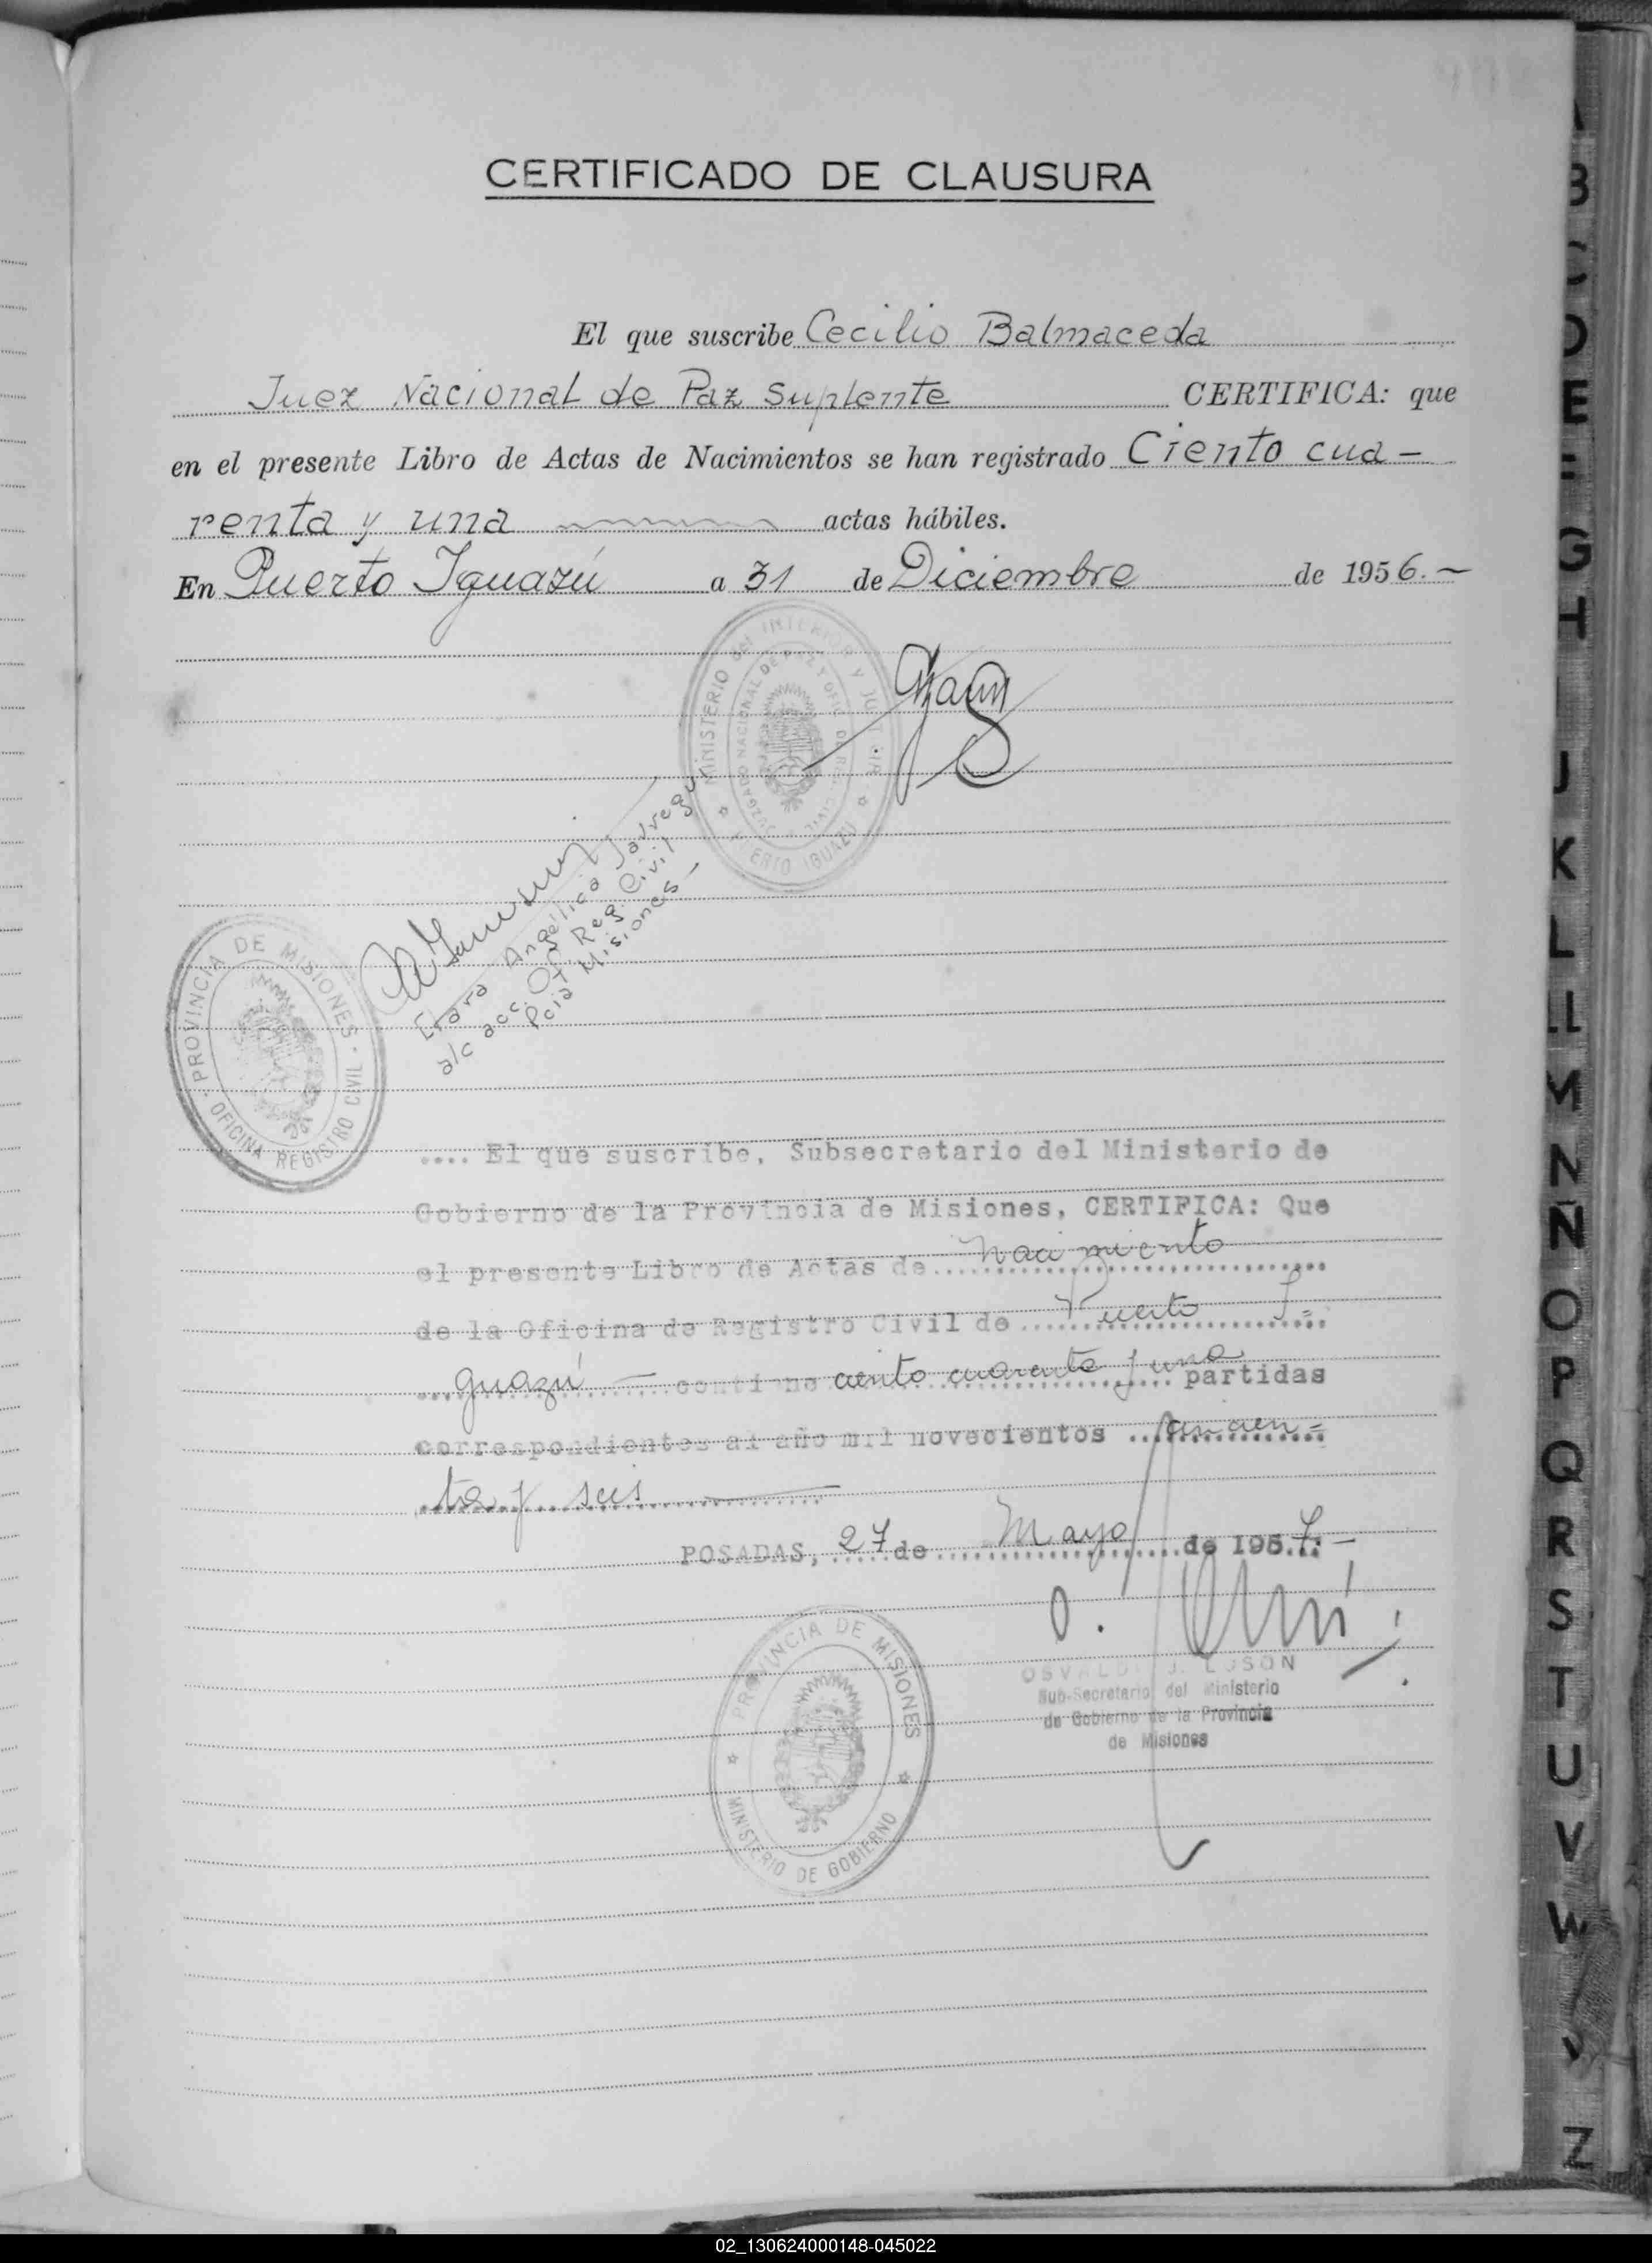 CERTIFICADO DE CLAUSURA
El que suscribe Cecilio Balmaceda
Juez Nacional de Paz Suplente CERTIFICA: que
en el presente Libro de Actas de Nacimientos se han registrado Ciento cua-
renta y una actas hábiles.
En Puerto Iguazú a 31 de Diciembre de 1956.-
MINISTERIO del INTERIOR Y JUSTICIA
JUZGADO NACIONAL DE PAZ Y OFIC. DE REG. CIVIL
PUERTO IGUAZU
Angélica Jauregui
a/c acc. Of. Reg. Civil
Pcia Misiones-
PROVINCIA DE MISIONES
OFICINA REGISTRO CIVIL
.... El que suscribe, Subsecretario del Ministerio de
Gobierno de la Provincia de Misiones, CERTIFICA: Que
el presente Libro de Actas de nacimiento
de la Oficina de Registro Civil de Puerto I=
guazú - contiene ciento cuarenta y una partidas
correspondientes al año mil novecientos cincuen=
ta y seis
POSADAS, 27 de Mayo de 1957.-
PROVINCIA DE MISIONES
MINISTERIO DE GOBIERNO
OSVALDO J.
Sub-Secretario del Ministerio
de Gobierno de la Provincia
de Misiones
B
C
D
E
F
G
H
I
J
K
L
LL
M
N
Ñ
O
P
Q
R
S
T
U
V
W
Z
02_130624000148-045022